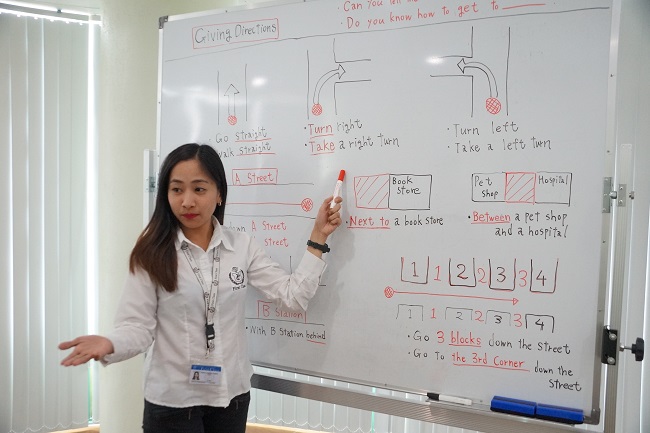 Can you
Giving Directions
• Do you know how to get to
• Go straight
walk straight
• Turn right
• Take a right turn
• Turn left
• Take a left turn
A Street
Book
Store
• Next to a book store
Pet
Shop
Hospital
• Between a pet shop
and a hospital
A Street
Street
1 1 2 2 3 3 4
1 1 2 2 3 3 4
B Station
• With B Station behind
• Go 3 blocks down the street
• Go to the 3rd Corner down the
street